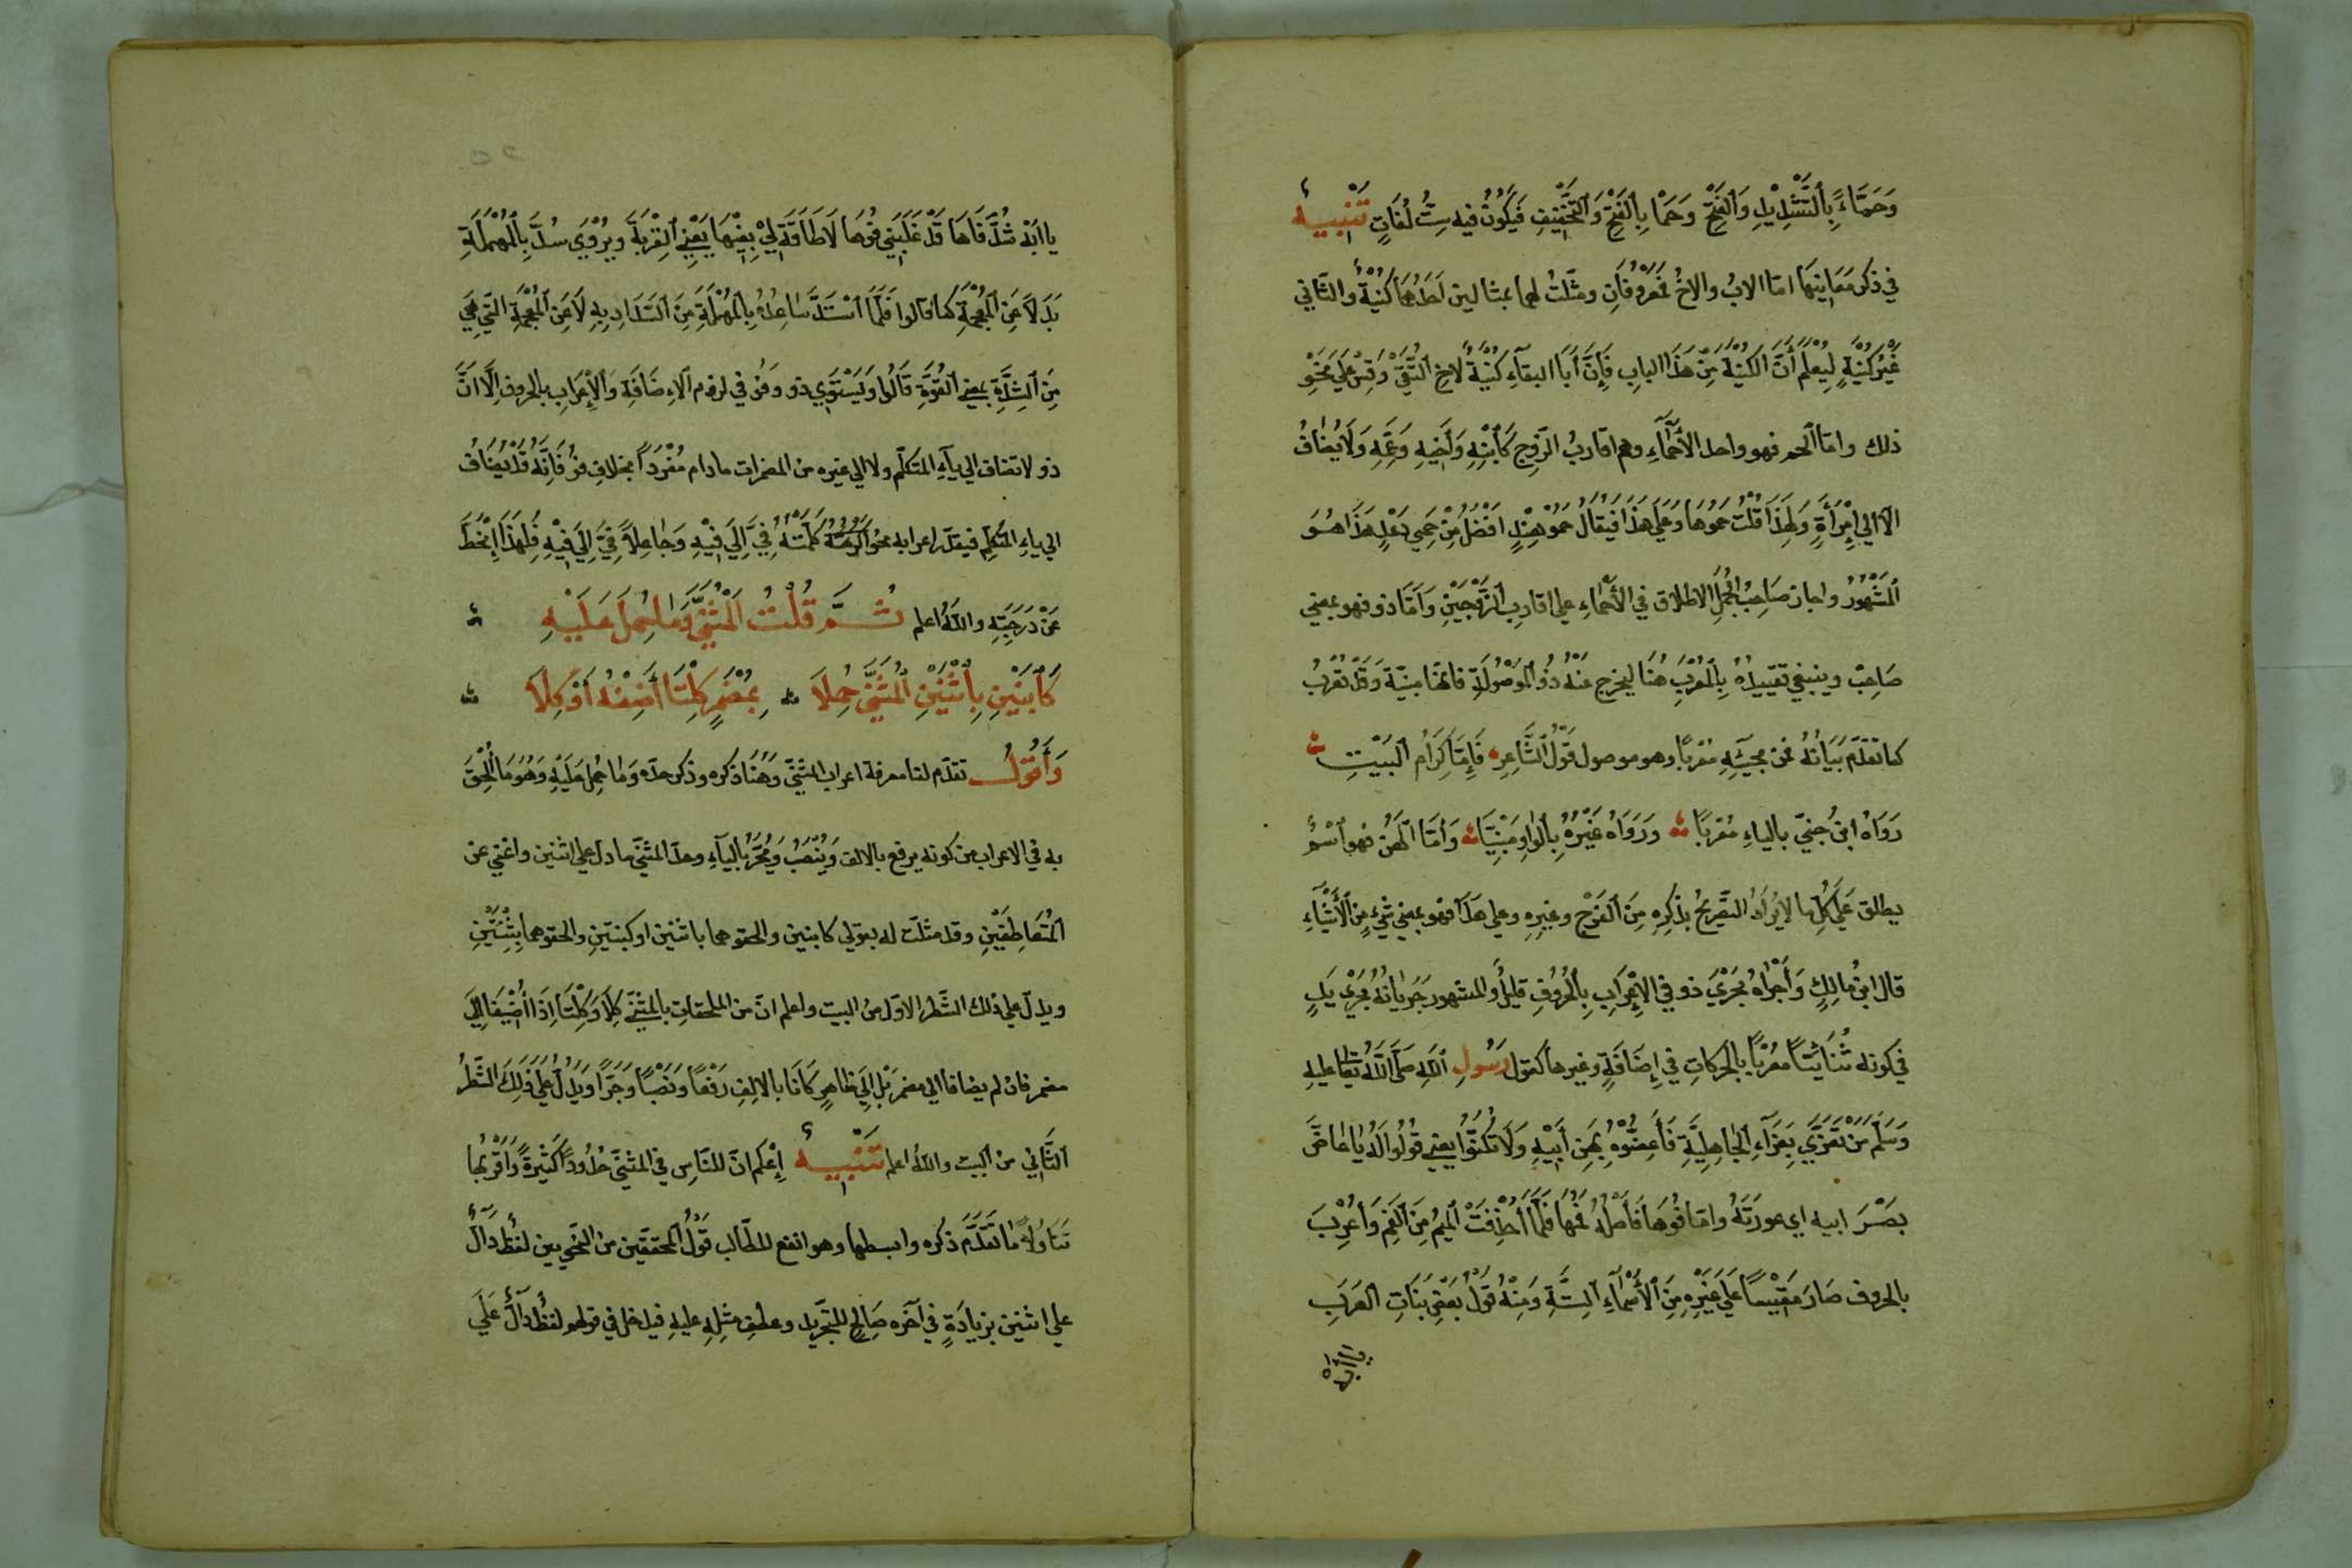 وَحَمَّاءً بِالتَّشْدِيْدِ وَالفَتْحِ وَحَمًا بِالفَتْحِ وَالتَّخْفِيْفِ فَيَكُوْنُ فيه سِتُّ لُغَاتٍ تَنْبِيهٌ
في ذكر مَعَانِيْهَا امّا الابُ والاخُ فَمَعْرُوْفَانِ ومثَّلْتُ لهما بمثالين اَحَدُهُمَا كُنْيَةٌ والثَّاني
غَيْرُ كُنْيَةٍ لِيُعْلَمَ أَنَّ الكُنْيَةَ مِنْ هَذَا البابِ فَإِنَّ أَبَا البقآءِ كُنْيَةٌ لاخِ التُّقَىْ وَقِسْ عَلَى نَحْوِ
ذلك وامّا الحم فهو واحد الأَحْمَآءِ وهم اقاربُ الزَّوج كَابْنِهِ وَاَخِيهِ وَعَمِّهِ وَلَا يُضَافُ
الّا الي اِمْرَأَةٍ وَلِهَذَا قُلْتُ حَمُوهَا وَعَلَي هَذَا فَيُقَالُ حَمُوْ هِنْدٍ اَفْضَلُ مِنْ حَمِي دَعْدٍ هَذَا هُوَ
المَشْهُوْرُ واجاز صَاحِبُ الجُمَلِ الاطلاق في الأَحْمَاءِ على اقارب الزَّوْجَيْنِ وَاَمَّا ذو فهو بمعني
صَاحِبْ وينبغي تقييدُهُ بِالمُعْرَبِ هُنَا ليخرج عَنْهُ ذُو المَوْصُولَةِ فانّها مبنيّة وَقَدْ تُعْرَبُ
كما تقدّم بَيَانُهُ فمن مجيئِهِ مُعْرَبًا وهو موصول قَوْلُ الشَّاعِرِ فَإِمَّا كِرَامٌ البَيْتِ
رَوَاهُ ابنُ جِنِّيْ بالياءِ مُعْرَبًا وَرَوَاهُ غَيْرُهُ بِالوَاوِ مَبْنِيًّا وَاَمَّا الهَنُ فهو اسْمٌ
يطلق عَلَى كُلِّ ما لا يُرَادُ التَصْرِيحُ بذكرِهِ مِنَ الفَرْجِ وغيرِهِ وعلى هَذَا فهو بمعني شَيْءٍ مِنَ الأَشْيَآءِ
قال ابنُ مَالِكٍ وَأَجْرَاهُ مَجْرَي ذو في الإِعْرَابِ بِالحُرُوفِ قليلٌ وَالمشهور جَرَيَانُهُ مَجْرَي يَدٍ
في كونه ثُنَائِيًّا مُعْرَبًا بالحَرَكاتِ في اِضَافَةٍ وغيرها كقول رَسُولِ اللَّهِ صَلَّي اللَّهُ تعالى عليهِ
وَسَلَّمَ مَنْ تَعَزَّي بِعَزَآءِ الجَاهِلِيَّةِ فَأَعِضُّوْهُ بِهَنِ أَبِيْهِ وَلَا تُكَنُّوْا يعني قُوْلُوْا لَهُ يا مَاصَّ
بَصْرَ ابيه اي عورَتَهُ وامّا فُوهَا فَأَصْلُهُ فَمُهَا فَلَمَّا أُحْذِفَتْ المِيْمُ مِنَ الفَمِ وَأُعْرِبَ
بالحروف صَارَ مَقِيْسًا عَلَي غَيْرِهِ مِنَ الأَسْمَآءِ السِّتَّةِ وَمِنْهُ قَوْلُ بَعْضِ بَنَاتِ العَرَبِ
يا ابه
يا ابَهْ شُدَّ فَاهَا قَدْ غَلَبَنِي فُوهَا لَا طَاقَةَ لِيْ بِفِيْهَا يَعْنِي القِرْبَةَ ويُرْوَي سُدَّ بِالمُهْمَلَةِ
بَدَلًا عَنِ المُعْجَمَةِ كما قالوا فَلَمَّا اسْتَدَّ سَاعِدُهُ بِالمُهْمَلَةِ مِنَ السَّدَادِ بِهِ لَا عَنِ المُعْجَمَةِ الَّتِي هِيَ
مِنَ الشِّدَّةِ بمعني القُوَّةِ قَالُوا وَيَسْتَوِي ذو وَفُو في لزوم الاِضَافَةِ وَالإِعْرَابِ بالحروف اِلَّا أَنَّ
ذو لا تضاف الي يآءِ المتكلّم ولا الي غيره من المضمرات ما دام مُفْرَدًا بخلافِ فُو فَإِنَّهُ قَدْ يُضَافُ
الي ياءِ المتكلّم فيقدّر اعرابه نحو اَكْرَمْتَهُ كَلِمَتُهُ فِيَّ اِلَى فِيْهِ وَجَاعِلًا فِيَّ اِلَى فِيْهِ فَلِهَذَا اِنْحَطَّ
عَنْ دَرَجَتِهِ واللَّهُ اعلم ثُمَّ قُلْتُ المُثَنَّي وَمَا حُمِلَ عَلَيْهِ
كَابْنَيْنِ بِاثْنَيْنِ المُثَنَّي حُمِلَا بِمُضْمَرٍ كِلْتَا أَضِفْهُ أَوْ كِلَا
وَأَقُوْلُ تقدّم لنا معرفة اعراب المثنّي وَهُنَا ذكره وذكر حدّه وَمَا حُمِلَ عَلَيْهِ وَهُوَ مَا أُلْحِقَ
به في الاعراب من كونه يرفع بالالف وَيُنْصَبُ وَيُجَرُّ باليآءِ وحدّ المثنّي ما دلّ علي اثنين واغني عن
المُتَعَاطِفَيْنِ وقد مثلت له بقولي كابنين والحقوهما باثنين او كبنتين والحقوهما بِثِنْتَيْنِ
ويدلّ علي ذلك الشَّطر الاوّل من البيت واعلم انّ من الملحقات بالمثنّي كِلَا وَكِلْتَا اِذَا أُضِيْفَا اِلَى
مضمر فان لم يضافا الي مضمر بَلْ اِلَى ظاهرٍ كَانَا بالالِفِ رَفْعًا وَنَصْبًا وَجَرًّا وَيَدُلُّ عَلَي ذَلِكَ الشَّطْرُ
الثَّانِي من البيت واللَّهُ اعلم تَنْبِيهٌ اِعْلَم انّ للنّاسِ في المثنّي حُدُودًا كَثِيْرَةً وَأَقْرَبُهَا
تَنَاوُلًا مَا تَقَدَّمَ ذكره وابسطها وهو انفع للطّالب قَوْلُ المحقّقين من النّحويين لَفْظٌ دَالٌّ
علي اثنين بزيادَةٍ في آخره صَالِحٍ للتَّجْرِيد وعطف مِثْلِهِ عليهِ فيدخل في قولهم لَفْظٌ دَالٌّ عَلَي